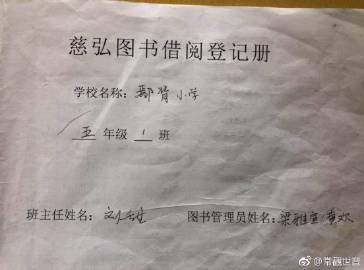 慈弘图书借阅登记册
学校名称：鄢背小学
五年级1班
班主任姓名：
图书管理员姓名：梁雅宜 黄欢
@常靓世音